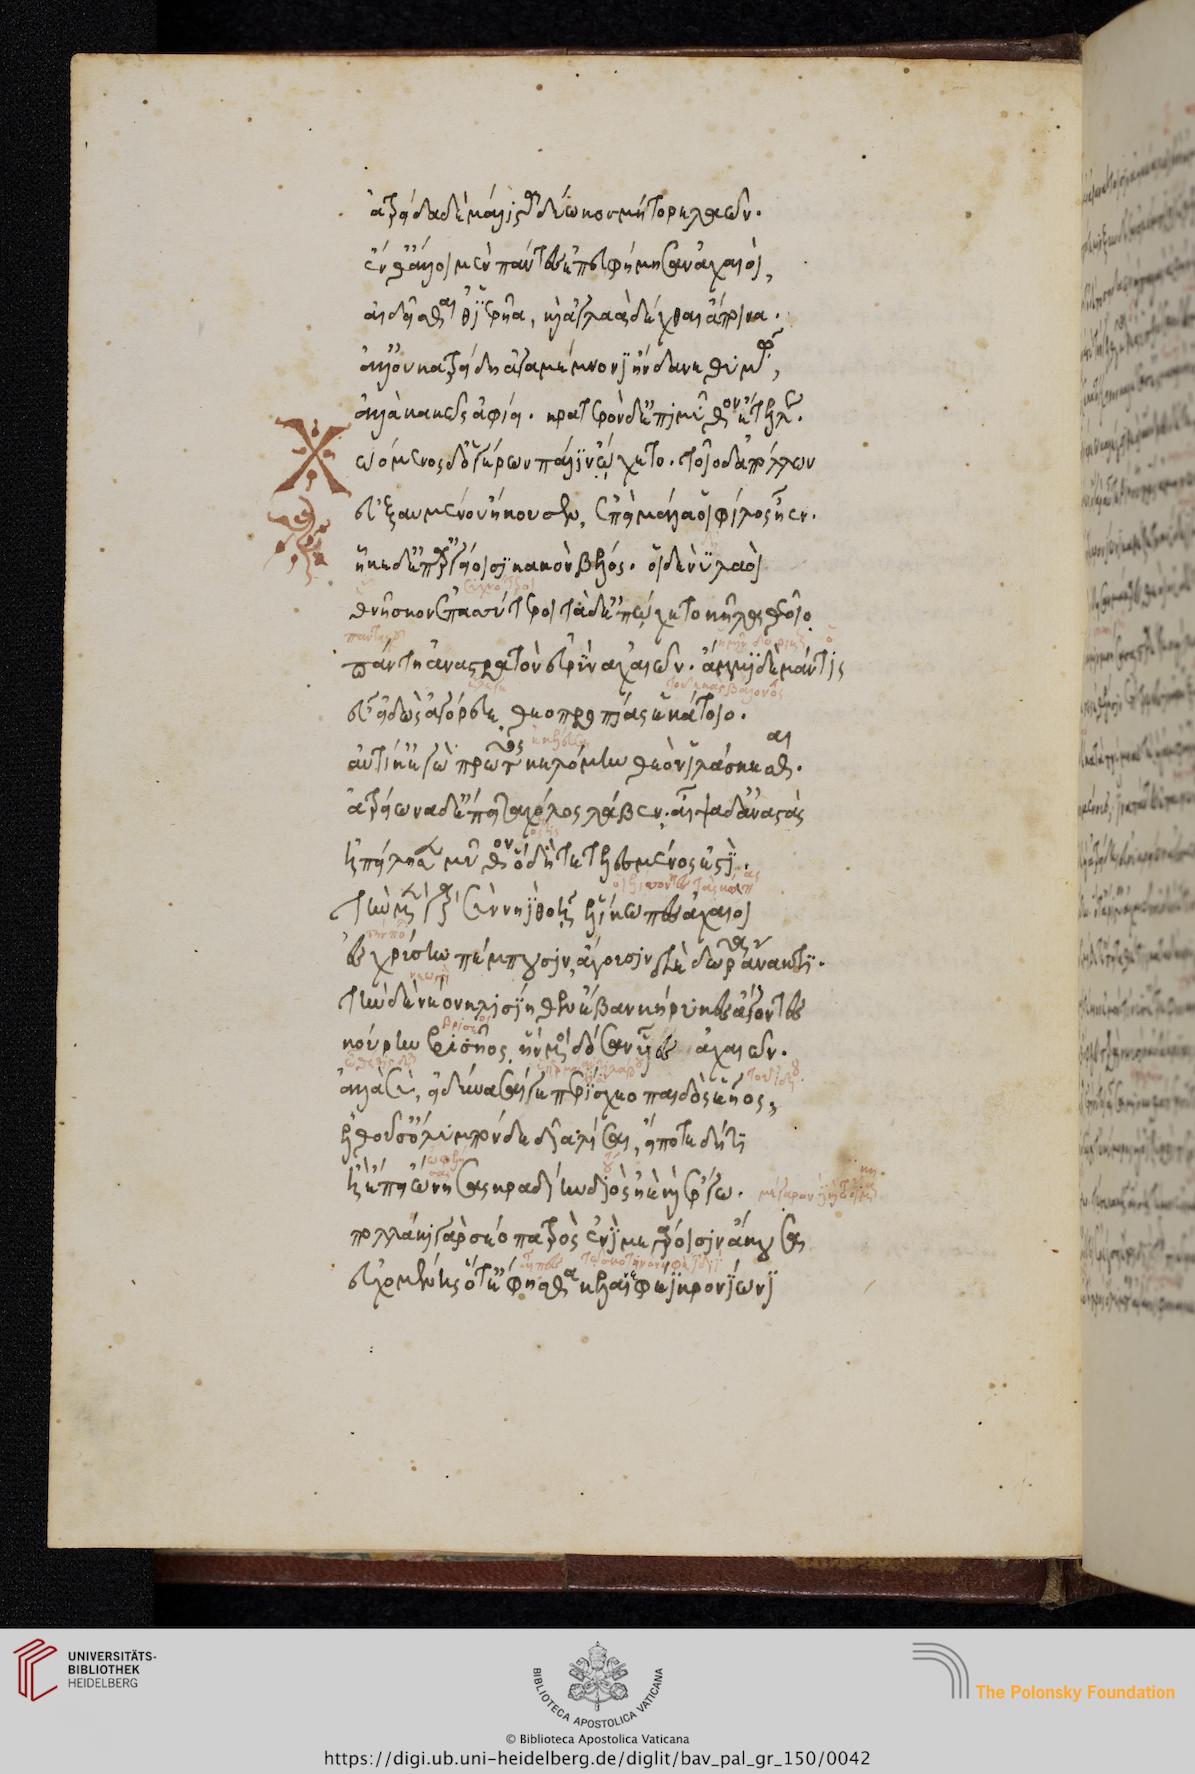 ἀτρείδα δὲ μάλιστα δύω κοσμήτορε λαῶν.
ἔνθ' ἄλλοι μὲν πάντες ἐπευφήμησαν ἀχαιοὶ,
αἰδεῖσθαι θ' ἱερῆα, καὶ ἀγλαὰ δέχθαι ἄποινα.
ἀλλ' οὐκ ἀτρείδη ἀγαμέμνονι ἥνδανε θυμῷ,
ἀλλὰ κακῶς ἀφίει. κρατερὸν δ' ἐπὶ μῦθον ἔτελλεν.
Χωόμενος δ' ὁ γέρων πάλιν ᾤχετο. τοῖο δ' ἀπόλλων
εὐξαμένου ἤκουσεν, ἐπεὶ μάλα οἱ φίλος ἦεν.
ἧκε δ' ἐπ' ἀργείοισι κακὸν βέλος. οἱ δέ νυ λαοὶ
θνῆσκον ἐπασσύτεροι τὰ δ' ἐπῴχετο κῆλα θεοῖο
πάντη ἀνὰ στρατὸν εὐρὺν ἀχαιῶν. ἄμμι δὲ μάντις
εὖ εἰδὼς ἀγόρευε θεοπροπίας ἑκάτοιο.
αὐτίκ' ἐγὼ πρῶτος κελόμην θεὸν ἱλάσκεσθαι.
ἀτρείωνα δ' ἔπειτα χόλος λάβεν. αἶψα δ' ἀναστὰς
ἠπείλησεν μῦθον ὃ δὴ τετελεσμένος ἐστί.
τὴν μὲν γὰρ σὺν νηῒ θοῇ ἑλίκωπες ἀχαιοὶ
ἐς χρύσην πέμπουσιν, ἄγουσιν δὲ δῶρα ἄνακτι.
τὴν δὲ νέον κλισίηθεν ἔβαν κήρυκες ἄγοντες
κούρην βρισῆος, τήν μοι δόσαν υἷες ἀχαιῶν.
ἀλλὰ σὺ, εἰ δύνασαί γε περίσχεο παιδὸς ἑῆος,
ἐλθοῦσ' οὔλυμπον δὲ δία λίσαι, εἴποτε δή τι
ἢ ἔπει ὤνησας κραδίην διὸς ἠὲ καὶ ἔργω.
πολλάκι γάρ σέο πατρὸς ἐνὶ μεγάροισιν ἄκουσα
εὐχομένης ὅτ' ἔφησθα κελαινεφέϊ κρονίωνι
UNIVERSITÄTS-
BIBLIOTHEK
HEIDELBERG
BIBLIOTECA APOSTOLICA VATICANA
The Polonsky Foundation
© Biblioteca Apostolica Vaticana
https://digi.ub.uni-heidelberg.de/diglit/bav_pal_gr_150/0042